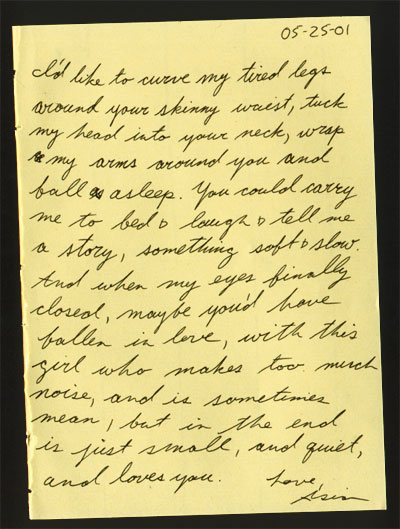 05-25-01
I'd like to curve my tired legs
around your skinny waist, tuck
my head into your neck, wrap
my arms around you and
fall asleep. You could carry
me to bed & laugh & tell me
a story, something soft & slow.
And when my eyes finally
closed, maybe you'd have
fallen in love, with this
girl who makes too much
noise, and is sometimes
mean, but in the end
is just small, and quiet,
and loves you. Love,